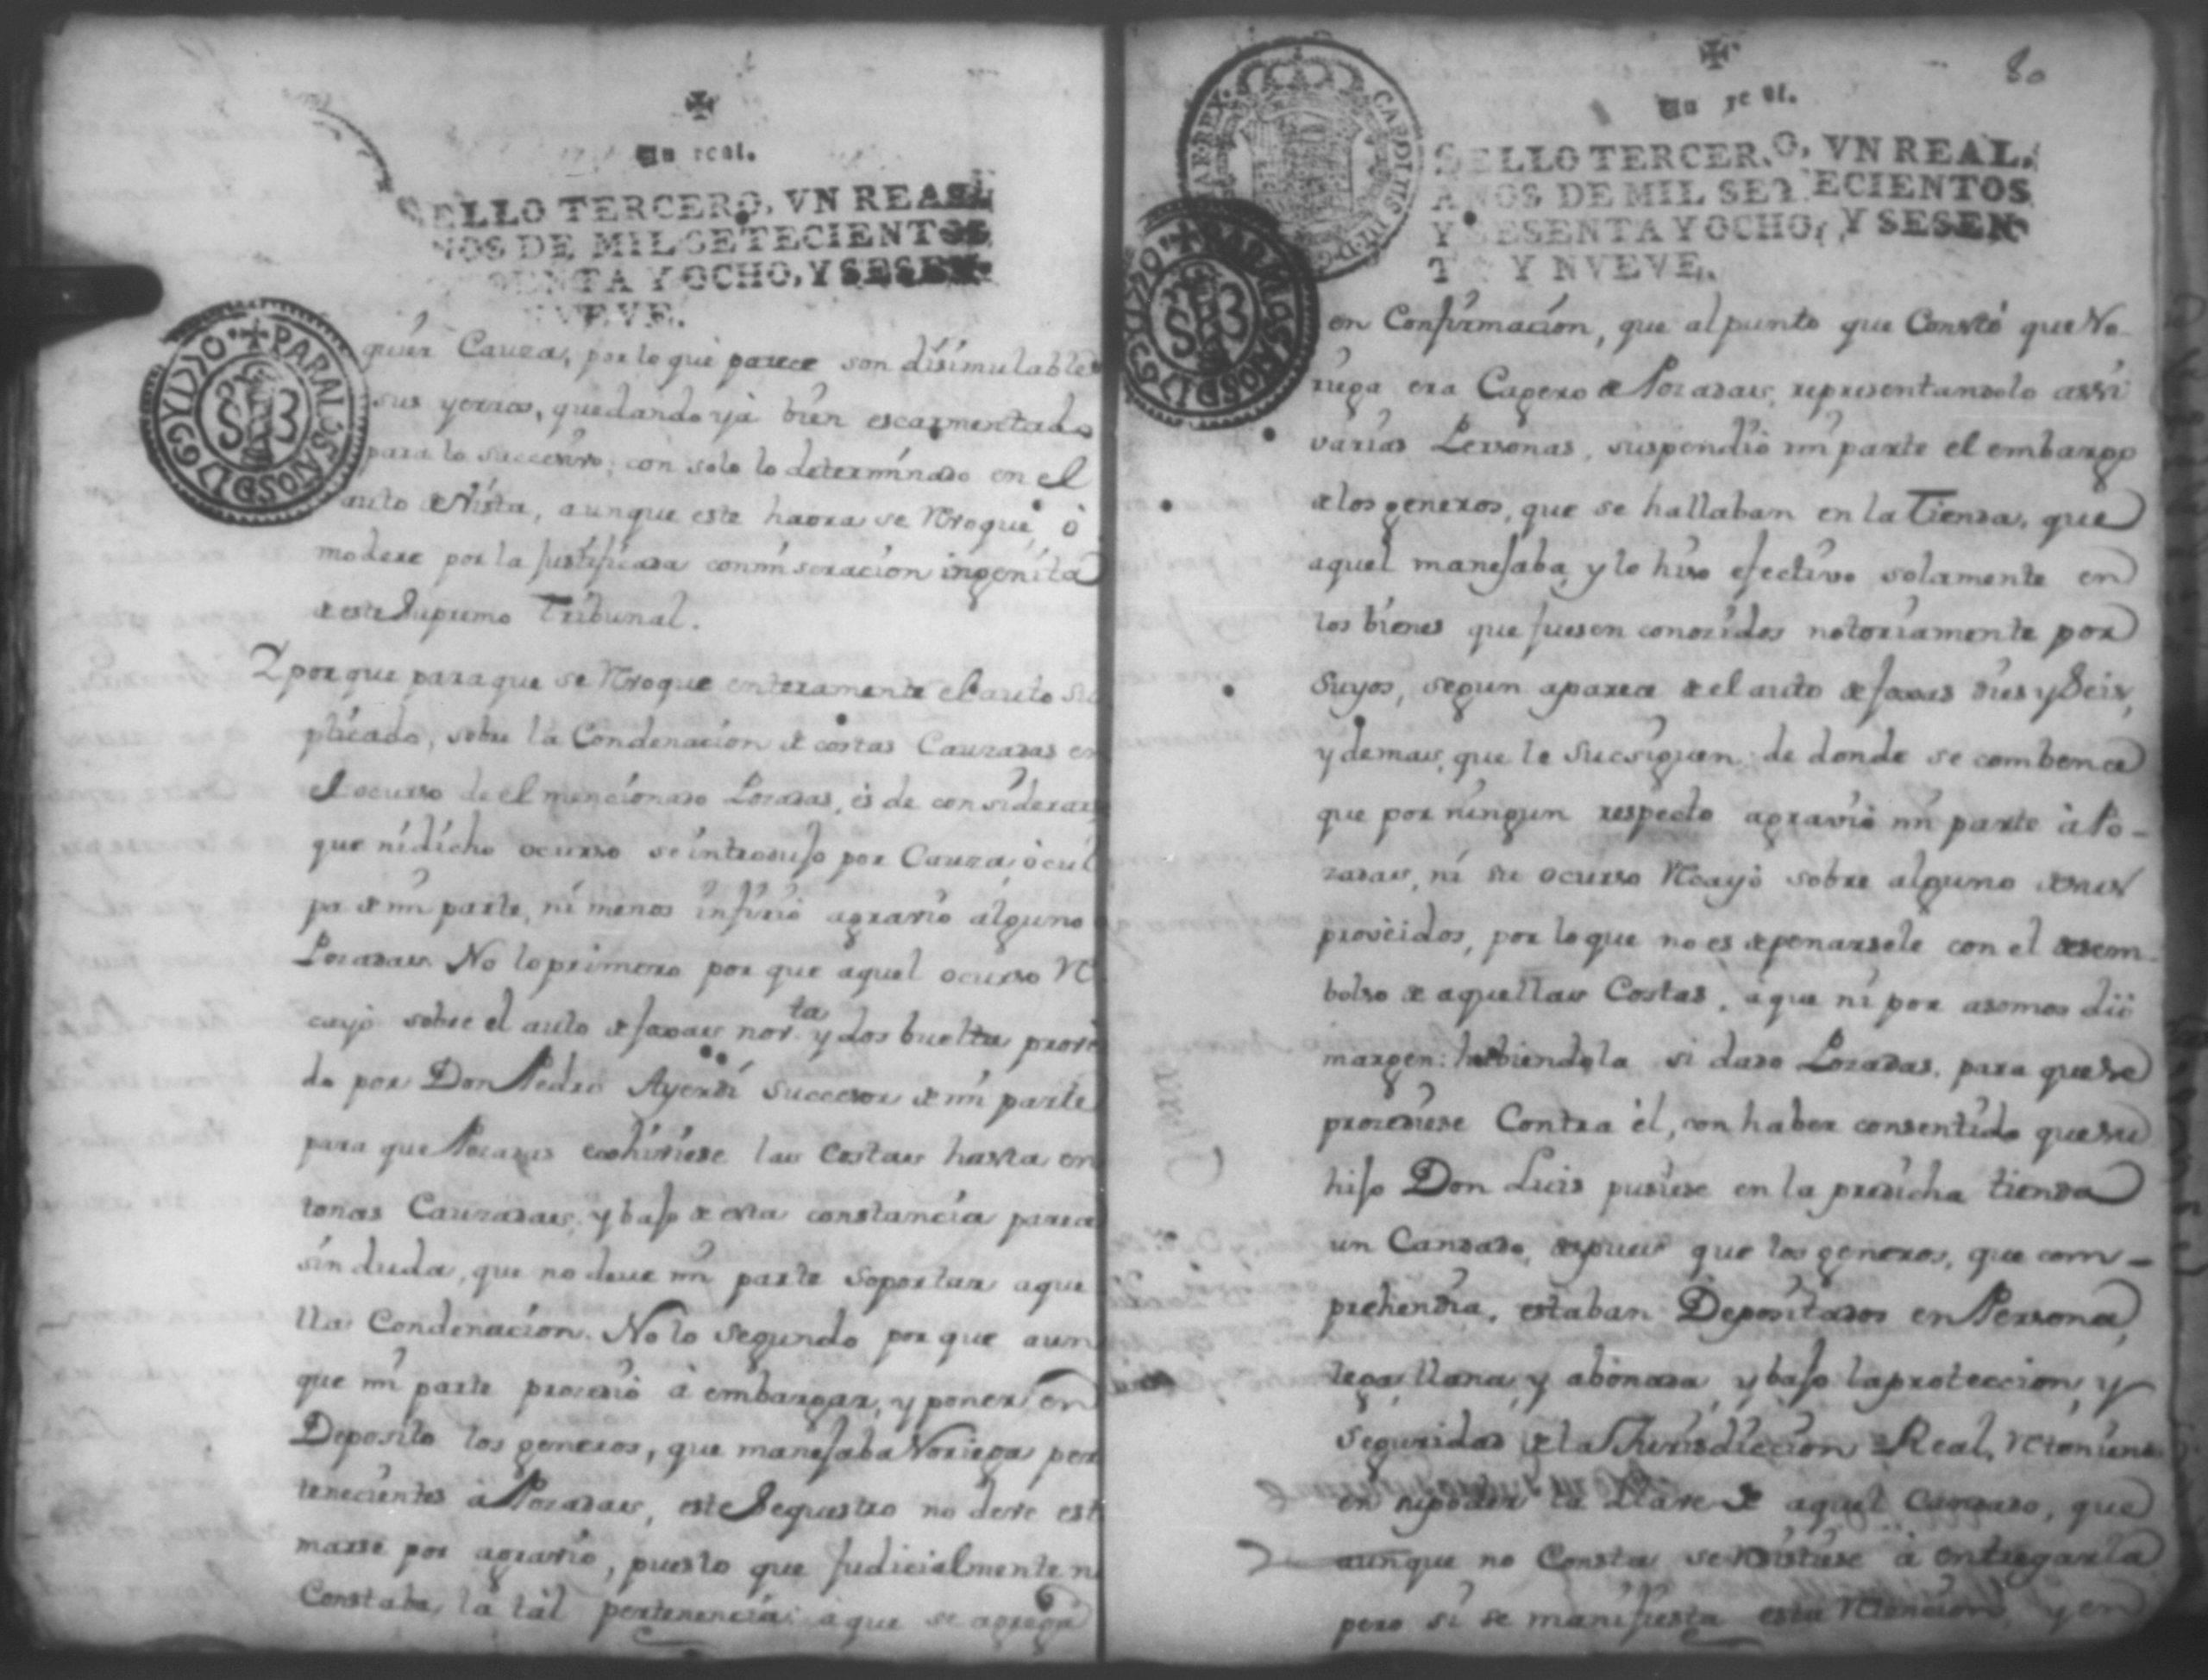 Un real.
SELLO TERCERO, VN REAL
NOS DE MIL SETECIENTOS
SENTA Y OCHO, Y SESEN
NVEVE.
PARA LOS AÑOS D 1769 Y 1770.
quier Cauza, por lo que parece son disimulables
sus yerros, quedando yà bien escarmentado
para lo succesivo, con solo lo determinado en el
auto de Vista, aunque este haora se revoque, ò
modere por la justificada conmiseracion ingenita
de este Supremo Tribunal.
Y porque para que se revoque enteramente el auto su
plicado, sobre la Condenacion de costas Cauzadas en
el ocurso de el mencionado Pozadas, es de considerar
que ni dicho ocurso se introdujo por Cauza, ò cul
pa de mi parte, ni menos infirió agravio alguno
Pozadas. No lo primero por que aquel ocurso re
cayò sobre el auto de foxas nov.ta y dos buelta provei
do por Don Pedro Ayerdi succesor de mi parte
para que Pozadas exhiviese las costas hasta en
tonces Cauzadas, y bajo de esta constancia parece
sin duda, que no deve mi parte soportar aque
lla Condenacion. No lo segundo por que aun
que mi parte procediò à embargar, y poner en
Deposito los generos, que manejaba Noriega per
tenecientes à Pozadas, este Sequestro no deve esti
marse por agravio, puesto que judicialmente no
Constaba la tàl pertenencia: à que se agrega
80
Un real.
SELLO TERCERO, VN REAL,
AÑOS DE MIL SETECIENTOS
Y SESENTA Y OCHO, Y SESEN
T Y NVEVE.
PARA LOS AÑOS D 1769 Y 1770.
en Confirmacion, que al punto que Constò que No-
riega era Cagero de Pozadas, representandolo assi
varias Personas, suspendiò mi parte el embargo
de los generos, que se hallaban en la Tienda, que
aquel manejaba, y lo hiso efectivo solamente en
los bienes que fuesen conocidos notoriamente por
Suyos, segun aparece de el auto de foxas dies y Seis,
y demas, que le Sucsiguen: de donde se combence
que por ningun respecto agraviò mi parte à Po-
zadas, ni su ocurso recayò sobre alguno de sus
proveidos, por lo que no es de penarsele con el desem-
bolso de aquellas Costas, à que ni por asomos diò
margen: habiendola si dado Pozadas, para que se
procediese Contra èl, con haber consentido que su
hijo Don Luis pusiese en la predicha tienda
un Candado, despues que los generos, que com-
prehendia, estaban Depositados en Persona,
lega, llana, y abonada, y bajo la proteccion, y
Seguridad de la Jurisdiccion Real, reteniendo
en su poder la Llave de aquel Candado, que
aunque no Consta se resistiese à entregarla
pero si se manifiesta esta retencion, y en